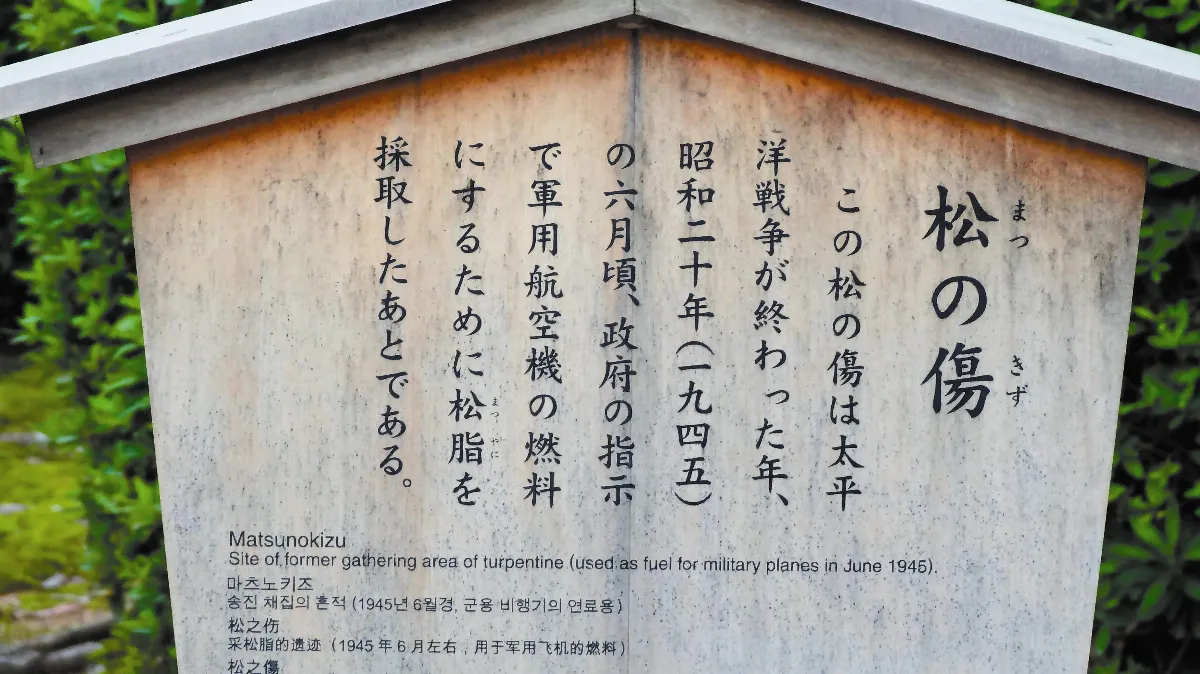 松の傷
まつ
きず
この松の傷は太平
洋戦争が終わった年、
昭和二十年(一九四五)
の六月頃、政府の指示
で軍用航空機の燃料
にするために松脂を
まつやに
採取したあとである。
Matsunokizu
Site of former gathering area of turpentine (used as fuel for military planes in June 1945).
마츠노키즈
송진 채집의 흔적 (1945년 6월경, 군용 비행기의 연료용)
松之伤
采松脂的遗迹（1945 年 6 月左右，用于军用飞机的燃料）
松之傷